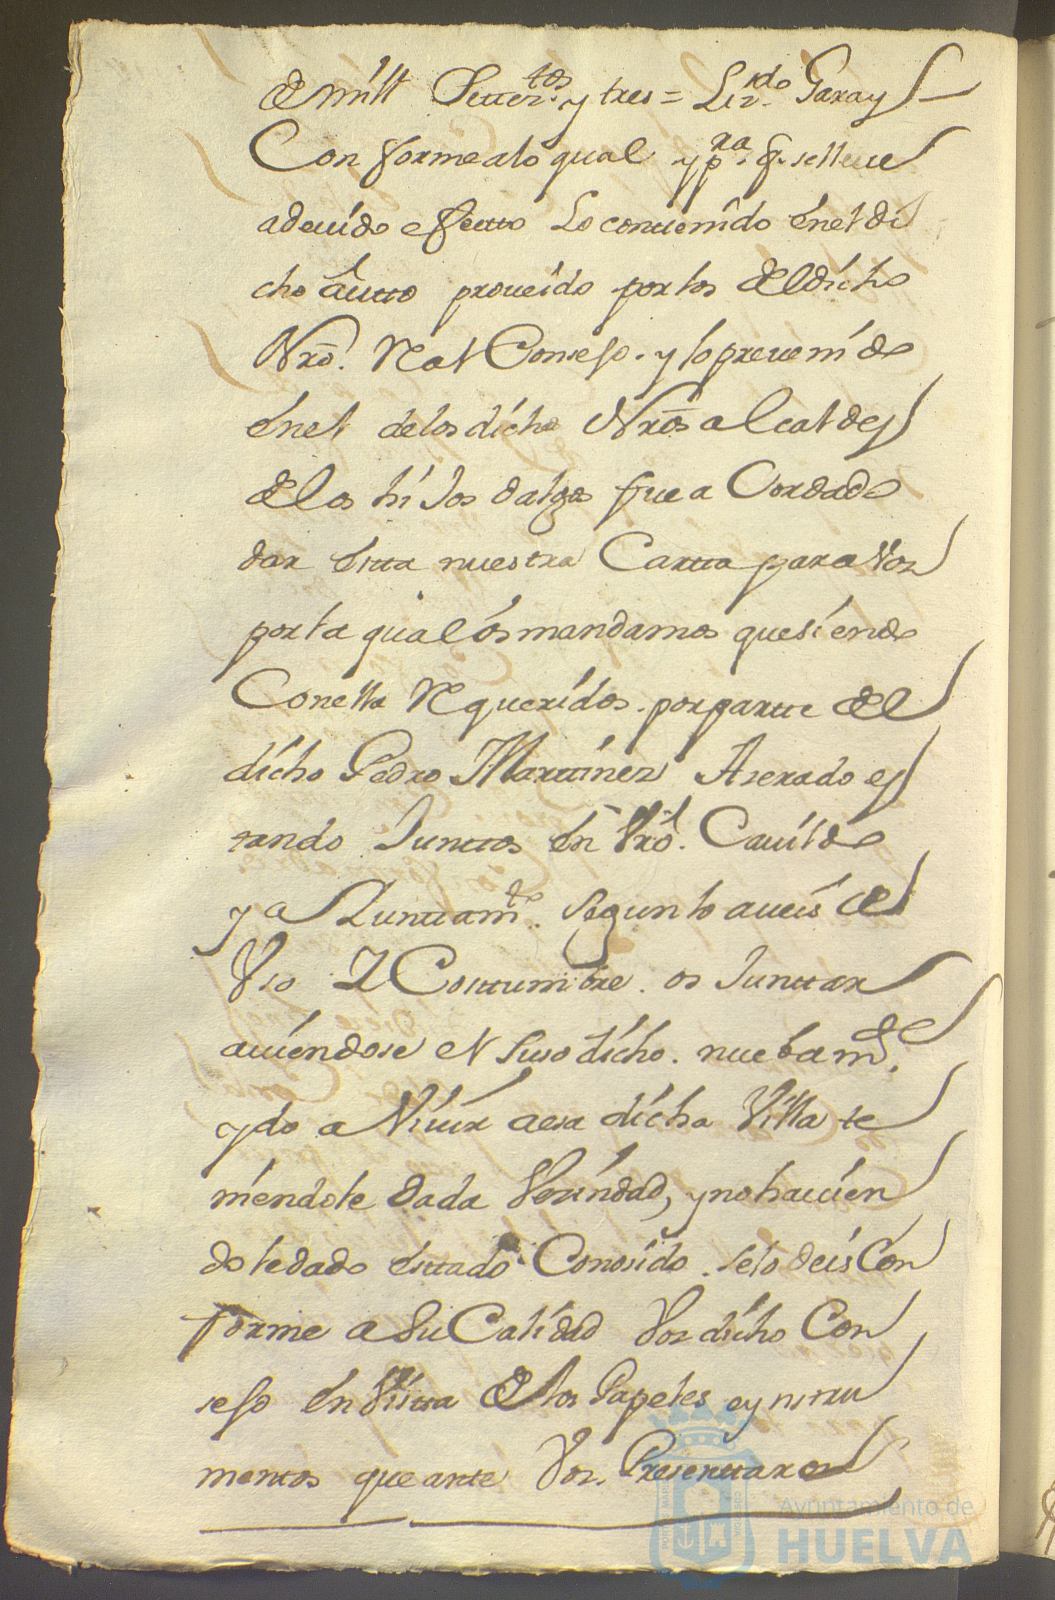 de mill Settez.tos y tres = Liz.do Garay
Conformealo qual y p.ra q. selleue
adeuido efectto Lo conttenido énel di
cho autto proueido por los deldicho
Nrō. Real Consejo. y lo preuenido
énel delos dichos Nrōs alcaldes
delos hijos dalgo fue a Cordado
dar estta nuestra Cartta para Vos
porla qual ós mandamos quesiendo
Conella Requeridos. por partte del
dicho Pedro Marttinez Aserado es
tando Junttos én Vrō. Cauildo
y a Junttam.to segun lo aueis de
Vso Y Costtumbre. os Junttar
auiendose el suso dicho. nuebam.te
ydo a Viuir aesa dicha Villa te
niendole dada Vezindad, y no hauien
dole dado esttado Conosido. selo deis Con
forme a su Calidad Vos dicho Con
sejo én Vistta delos Papeles eynstru
mentos que ante Vos. Presenttaren
Ayuntamiento de
HUELVA